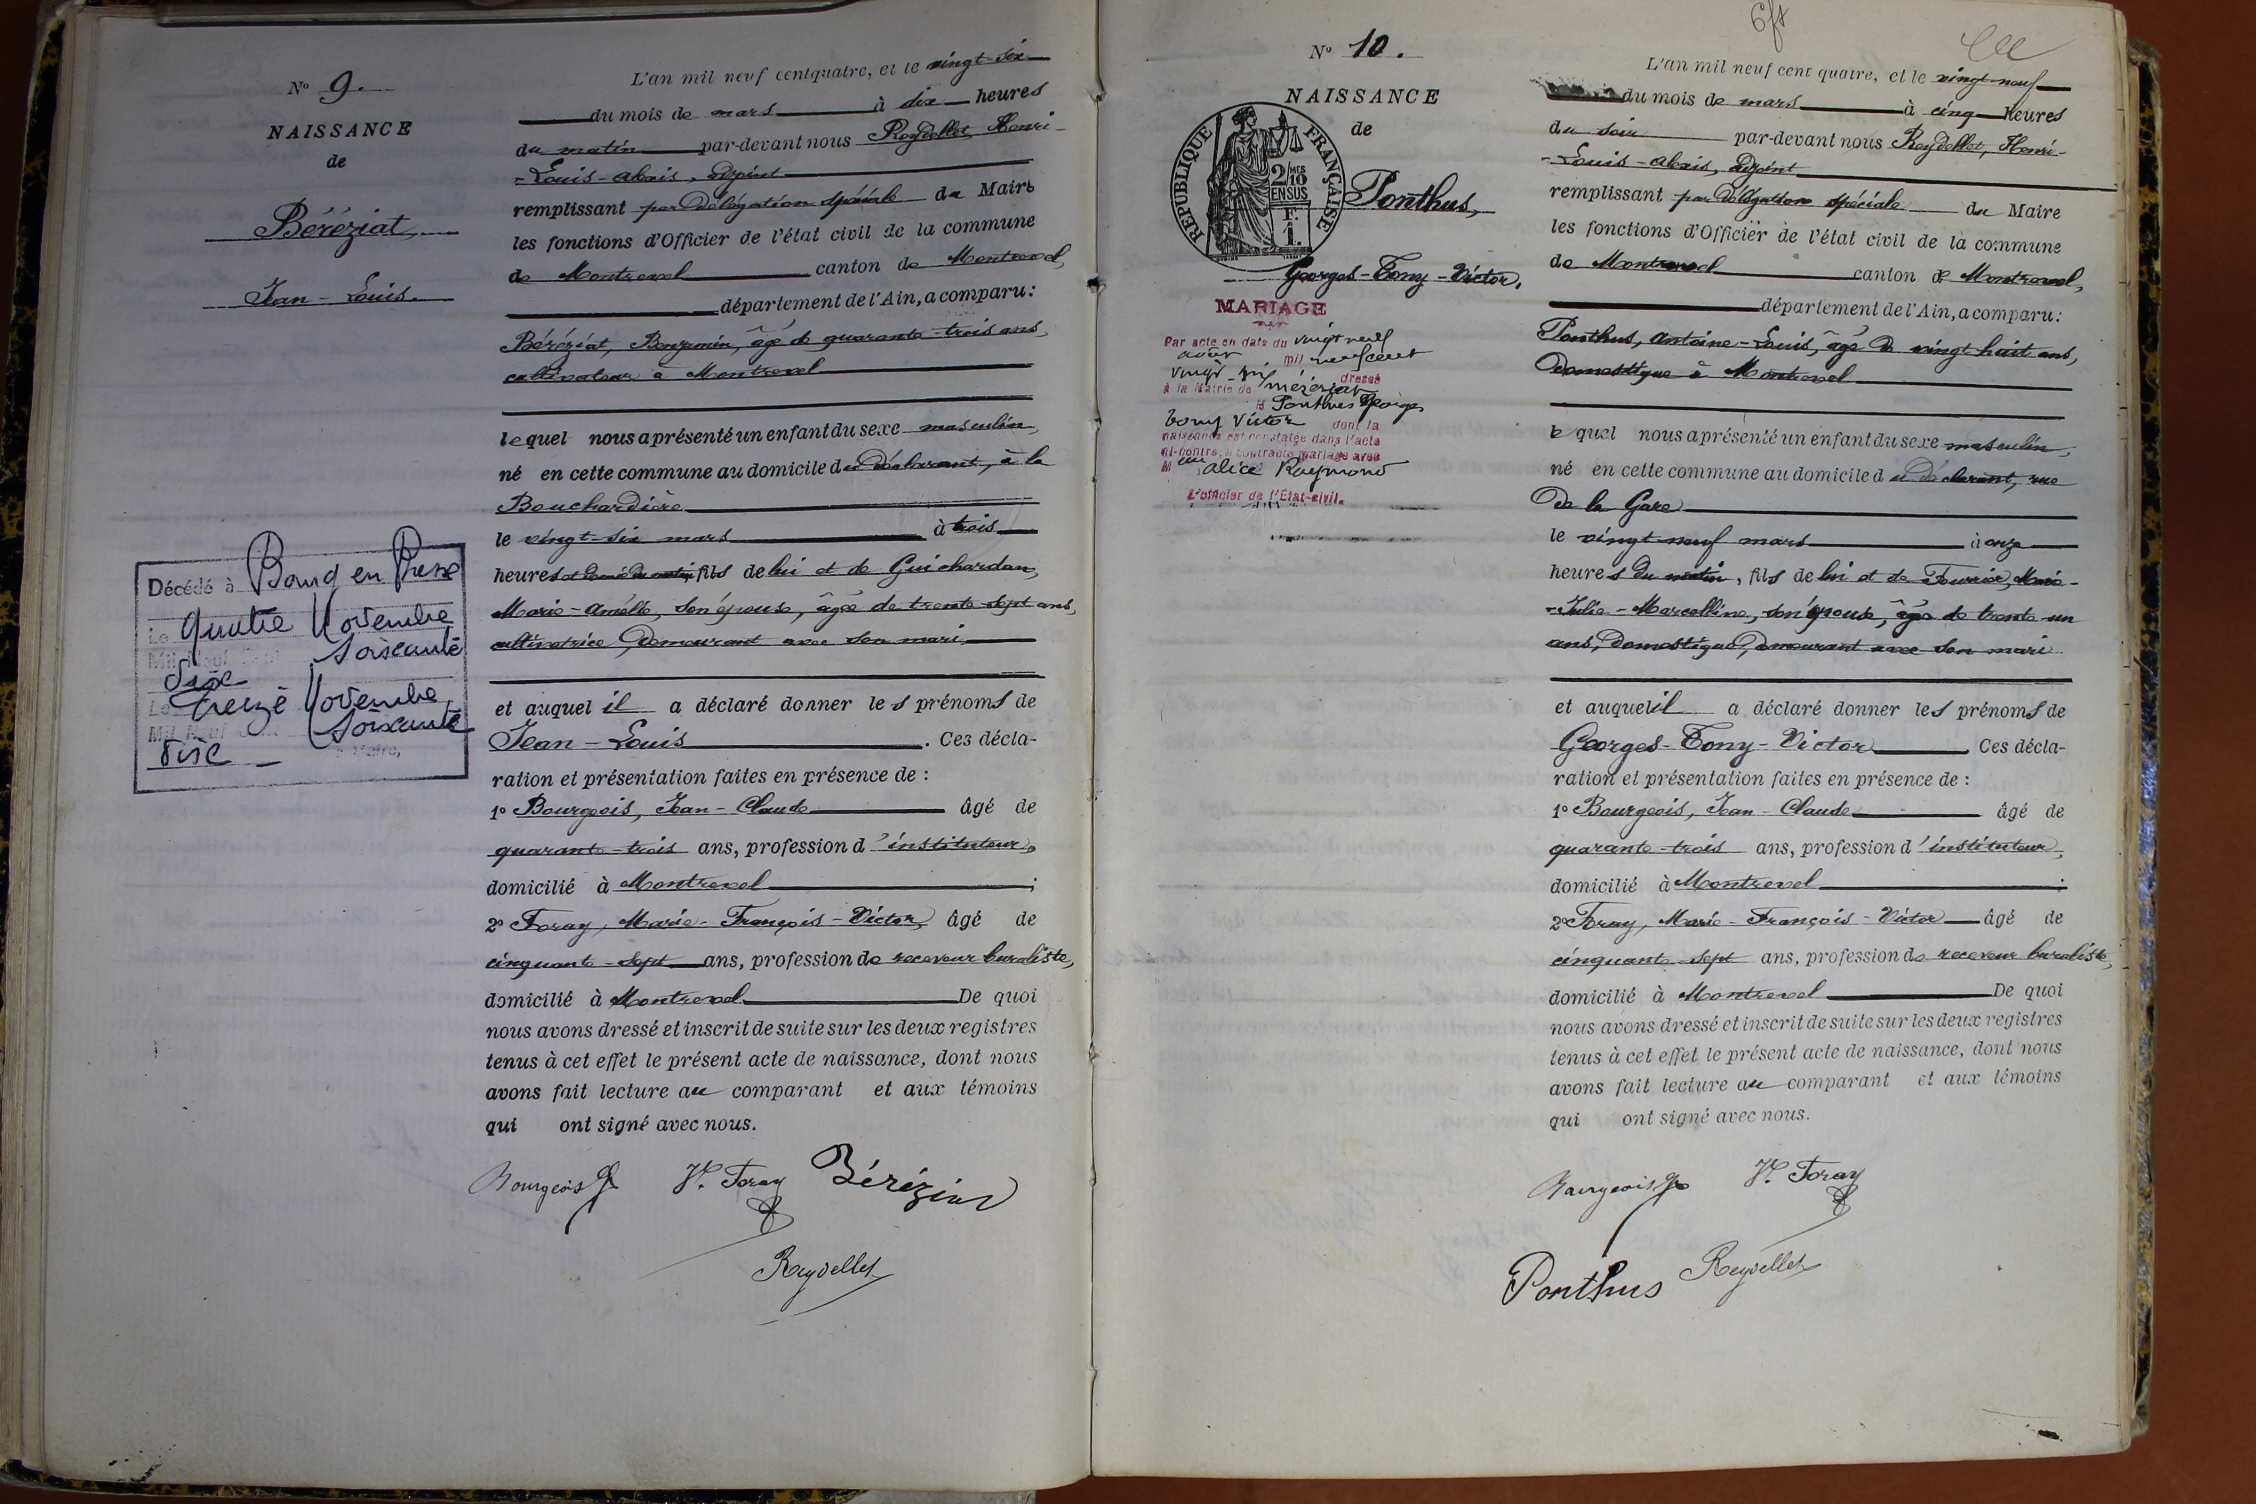 Nº 9.
NAISSANCE
de
Béréziat,
Jean-Louis.
Décédé à Bourg en Bresse
Le quatre Novembre
Mil Neuf Cent soixante
dix
Le Treize Novembre
Mil Neuf soixante
dix
L'an mil neuf cent quatre, et le vingt-six
du mois de mars à dix heures
du matin par-devant nous Reydellet, Henri-
-Louis-Alexis, adjoint
remplissant par délégation spéciale du Maire
les fonctions d'Officier de l'état civil de la commune
de Montrevel canton de Montrevel,
département de l'Ain, a comparu :
Béréziat, Benjamin, âgé de quarante-trois ans,
cultivateur à Montrevel
lequel nous a présenté un enfant du sexe masculin,
né en cette commune au domicile du déclarant, à la
Bouchardière
le vingt-six mars à trois
heures et demie du matin, fils de lui et de Guichardan,
Marie-Amélie, son épouse, âgée de trente-sept ans,
cultivatrice, demeurant avec son mari
et auquel il a déclaré donner les prénoms de
Jean-Louis. Ces décla-
ration et présentation faites en présence de :
1º Bourgeois, Jean-Claude âgé de
quarante-trois ans, profession d'instituteur,
domicilié à Montrevel ;
2º Foray, Marie-François-Victor, âgé de
cinquante-sept ans, profession de receveur buraliste,
domicilié à Montrevel De quoi
nous avons dressé et inscrit de suite sur les deux registres
tenus à cet effet le présent acte de naissance, dont nous
avons fait lecture au comparant et aux témoins
qui ont signé avec nous.
Bourgeois Vr. Foray Béréziat
Reydellet
Nº 10.
NAISSANCE
de
RÉPUBLIQUE FRANÇAISE
2/10 EN SUS
F. 1.
Ponthus,
Georges-Tony-Victor.
MARIAGE
Par acte en date du vingt neuf
août mil neuf cent
vingt-six dressé
à la Mairie de Mézériat
Ponthus Georges
Tony Victor dont la
naissance est constatée dans l'acte
ci-contre, a contracté mariage avec
Alice Raymond
L'officier de l'État-civil.
L'an mil neuf cent quatre, et le vingt-neuf
du mois de mars à cinq heures
du soir par-devant nous Reydellet, Henri-
-Louis-Alexis, adjoint
remplissant par délégation spéciale du Maire
les fonctions d'Officier de l'état civil de la commune
de Montrevel canton de Montrevel,
département de l'Ain, a comparu :
Ponthus, Antoine-Louis, âgé de vingt huit ans,
domestique à Montrevel
lequel nous a présenté un enfant du sexe masculin,
né en cette commune au domicile du déclarant, rue
de la Gare
le vingt-neuf mars à onze
heures du matin, fils de lui et de Fourrier, Marie-
-Julie-Marcelline, son épouse, âgée de trente-un
ans, domestique, demeurant avec son mari
et auquel il a déclaré donner les prénoms de
Georges-Tony-Victor Ces décla-
ration et présentation faites en présence de :
1º Bourgeois, Jean-Claude âgé de
quarante-trois ans, profession d'instituteur,
domicilié à Montrevel ;
2º Foray, Marie-François-Victor âgé de
cinquante-sept ans, profession de receveur buraliste,
domicilié à Montrevel De quoi
nous avons dressé et inscrit de suite sur les deux registres
tenus à cet effet le présent acte de naissance, dont nous
avons fait lecture au comparant et aux témoins
qui ont signé avec nous.
Bourgeois Vr. Foray
Ponthus Reydellet